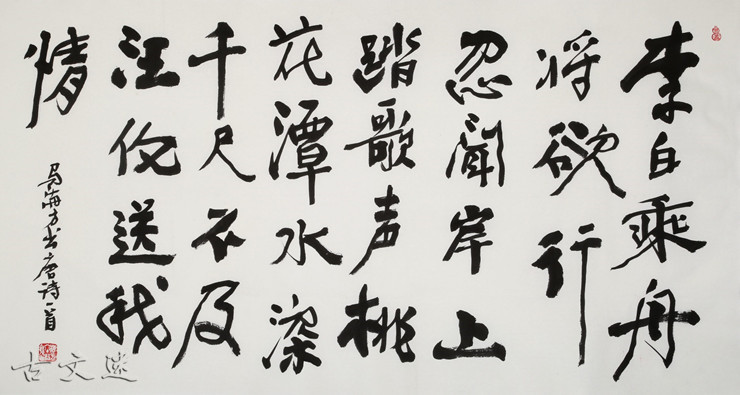 李白乘舟
将欲行
忽闻岸上
踏歌声桃
花潭水深
千尺不及
汪伦送我
情
马海方书唐诗一首
古文